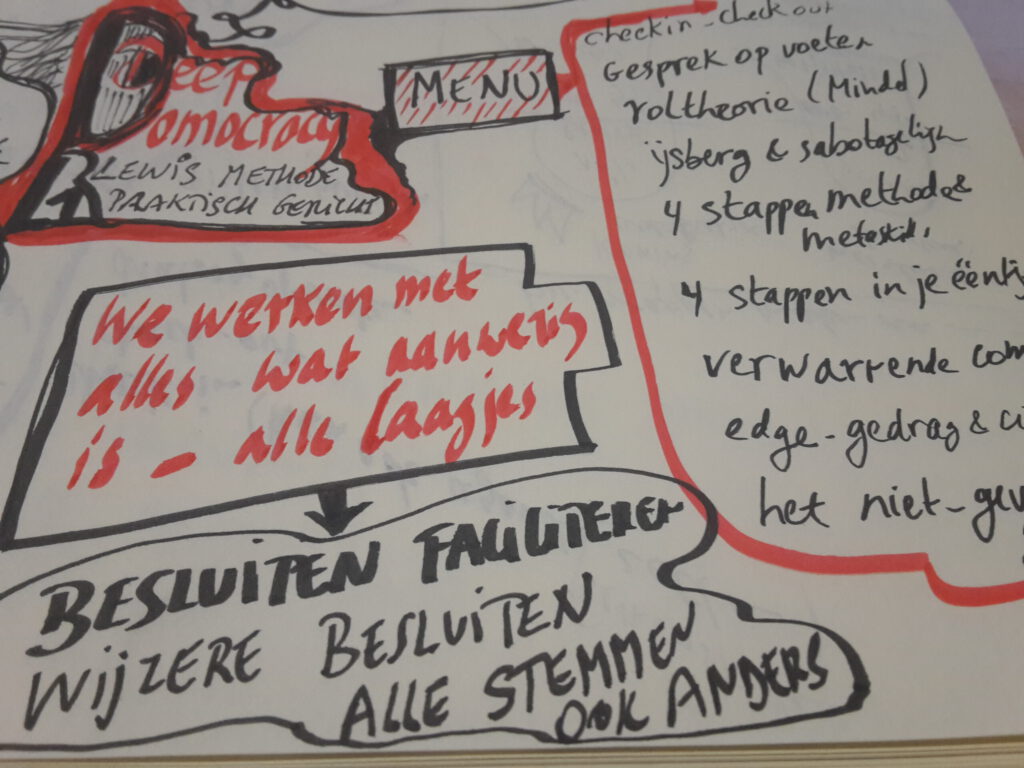 Deep
Domocracy
LEWIS METHODE
PRAKTISCH GERICHT
We werken met
alles wat aanwezig
is - alle laagjes
BESLUITEN FACILITEREN
WIJZERE BESLUITEN
ALLE STEMMEN
OOK ANDERS
MENU
checkin - checkout
Gesprek op voeten
roltheorie (Mindel)
ijsberg & sabotagelijn
4 stappen methode &
metaskills
4 stappen in je ééntj
verwarrende com
edge-gedrag & ci
het niet-gev